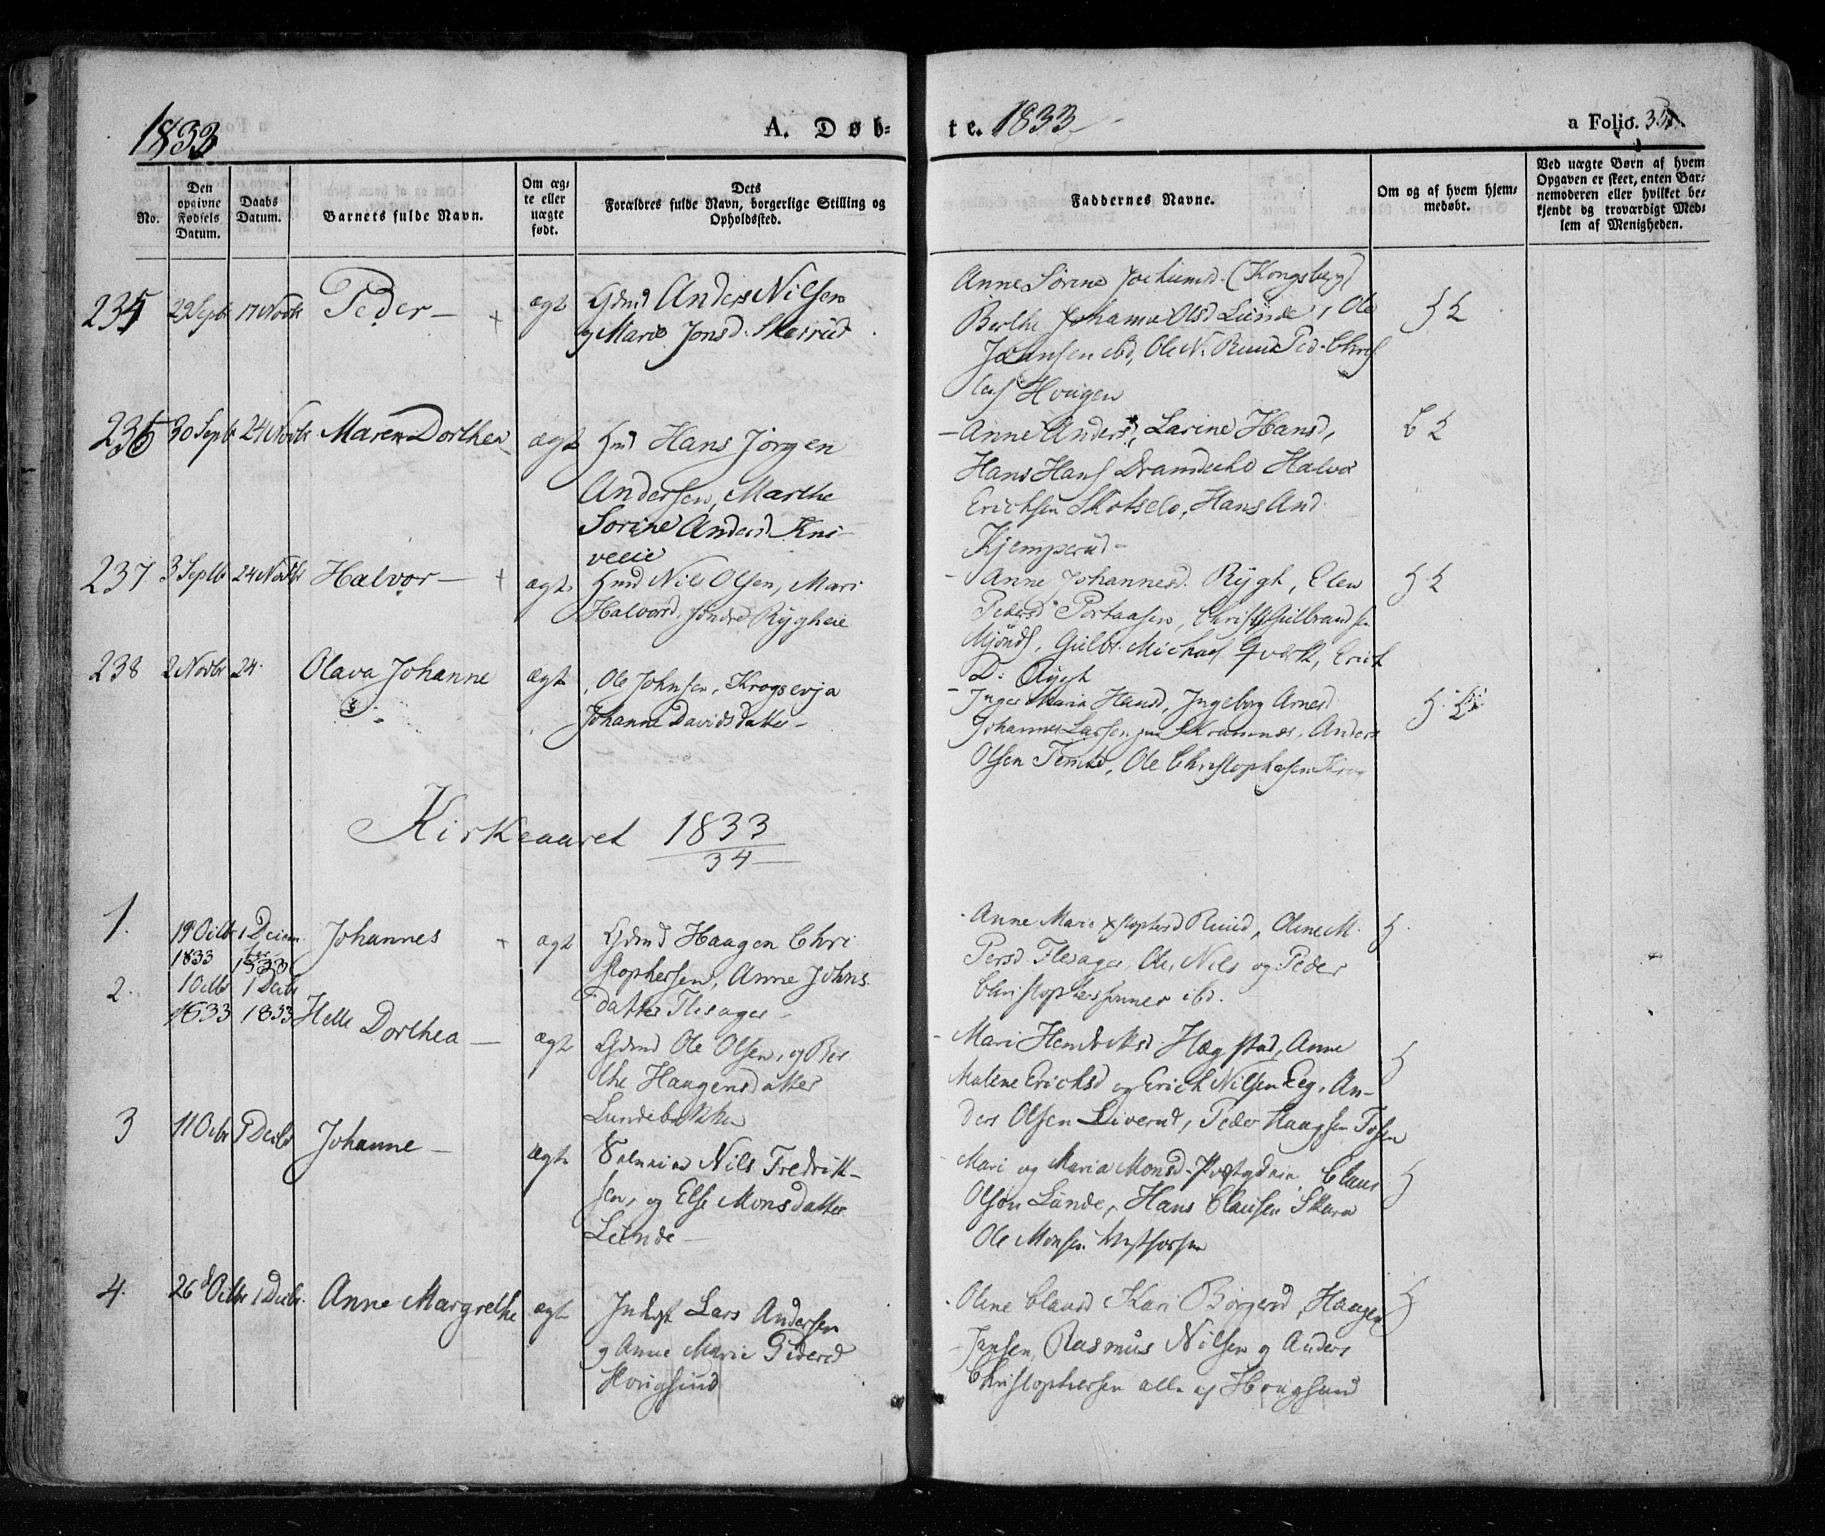 1833
A. Døb-
te. 1833
a Folio. 35
No.
Den
opgivne
Fødsels
Datum.
Daabs
Datum.
Barnets fulde Navn.
Om æg-
te eller
uægte
født.
Dets
Forældres fulde Navn, borgerlige Stilling og
Opholdssted.
Faddernes Navne.
Om og af hvem hjem-
medøbt.
Ved uægte Børn af hvem
Opgaven er skeet, enten Bar-
nemoderen eller hvilket be-
kjendt og troværdigt Med-
lem af Menigheden.
235 29 Septb 17 Novbr Peder — + ægt Gdmd Anders Nilsen
og Marie Jonsd.
Anne Sørine Jochumsd. (Kongsberg)
Berthe Johanne Olsd Lunde, Ole
Johnsen ibd, Ole N. Ruud Ped. Chris
Hougen
236 30 Septb 24 Novbr Maren Dorthea ægt Hmd Hans Jørgen
Andersen, Marthe
Sorine Andersd Kni-
veeie
— Anne Andersd, Larine Hansd,
Hans Hans Halvor
Ericksen Skotselv, Hans And.
Kjemperud —
237 3 Septb 24 Novbr Halvor — + ægt Hmd Nils Olsen, Mari
Halvorsd. søndre Rygheie
— Anne Johannesd. Rygh, Elen
Pedersd Portaasen, Christ Gulbrandsen
Gulbr. Michael Erick
D. Rygh
238 2 Novbr 24. Olava Johanne ægt Ole Johnsen, Krogsevja
Johanne Davidsdatter —
— Inger Maria Hansd, Ingeborg Arnesd
Johannes Larsen Skramnes, Anders
Olsen Temte, Ole Christophersen
Kirkeaaret 1833
34
1. 19 Octbr 1 Decem
1833 1833
Johannes + ægt Gdmd Haagen Chri
stophersen, Anne Johns
datter Flesager —
Anne Marie Xstophersd Ruud, Olene M.
Persd Flesager, Ole, Nils og Peder
Christophersønner ibd.
2. 1 Octbr 1 Decbr
1833 1833
Helle Dorthea — ægt Gdmd Ole Olsen, og Ber
the Haagensdatter
Lundebakken
— Mari Hendriksd. Hægstad, Anne
Malene Ericksd og Erick Nilsen Eeg, An-
ders Olsen Liverud, Peder Haagsen
3 11 Octbr 1 Decbr Johanne — ægt Nils Fredrik-
sen, og Else Monsdatter
Lunde —
— Mari og Maria Monsd. Claus
Olsen Lunde, Hans Clausen Skara
Ole Monsen
4. 26d Octbr 1 Decbr. Anne Margrethe ægt Indgt Lars Andersen
og Anne Marie Pedersd
Hougsund
Olene Clausd Kari Børgersd, Haagen
Jensen, Rasmus Nilsen og Anders
Christophersen alle af Hougsund